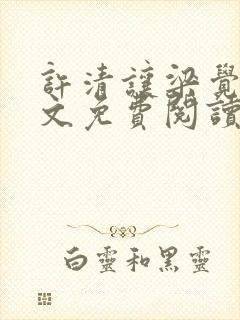 許清讓梁覺
文免費閱讀
白靈和黑靈